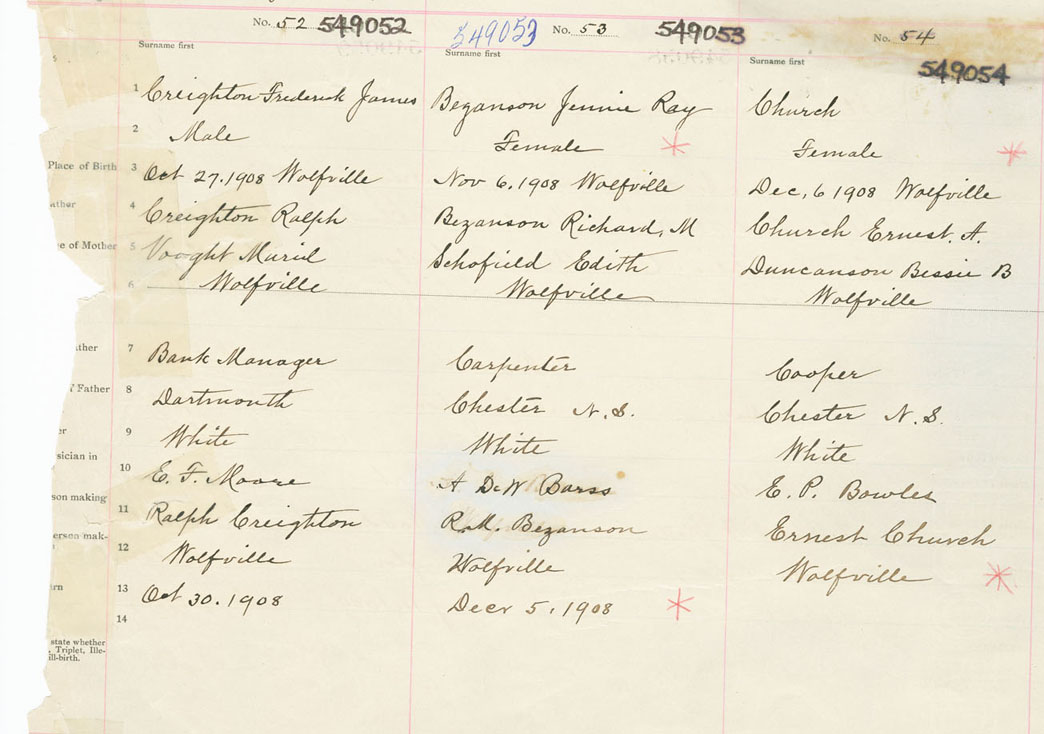 No. 52 549052
549053 No. 53 549053
No. 54
549054
Surname first
Surname first
Surname first
s
1 Creighton Frederick James
Bezanson Jennie Ray
Church
2 Male
Female
Female
Place of Birth 3 Oct 27.1908 Wolfville
Nov 6.1908 Wolfville
Dec, 6 1908 Wolfville
ather 4 Creighton Ralph
Bezanson Richard, M
Church Ernest. A.
e of Mother 5 Vooght Muriel
Schofield Edith
Duncanson Bessie B
6 Wolfville
Wolfville
Wolfville
ather 7 Bank Manager
Carpenter
Cooper
Father 8 Dartmouth
Chester N.S.
Chester N.S.
er 9 White
White
White
sician in 10 E. F. Moore
A DeW Barss
E. P. Bowles
son making 11 Ralph Creighton
R.M. Bezanson
Ernest Church
erson mak- 12 Wolfville
Wolfville
Wolfville
rn 13 Oct 30.1908
Decr 5, 1908
14
state whether
Triplet, Ille-
ill-birth.